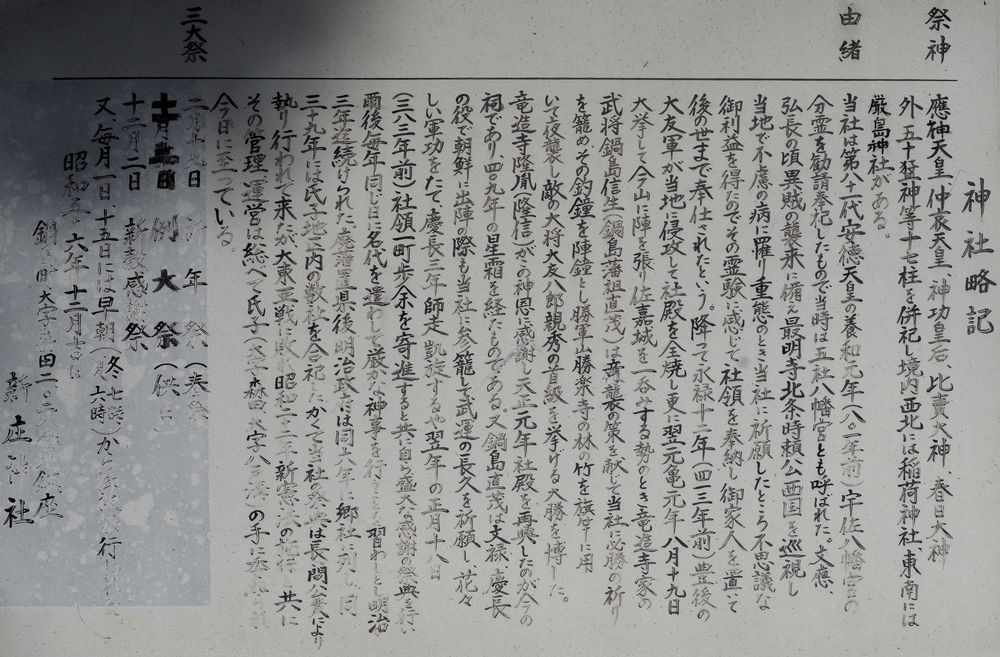 神社略記
祭神
應神天皇、仲哀天皇、神功皇后、比賣大神、春日大神
外五十猛神等十七柱を併記し境内西北には稲荷神社、東南には
厳島神社がある。
由緒
当社は第八十一代安徳天皇の養和元年(八〇一年前)宇佐八幡宮の
分霊を勧請奉祀したもので当時は五社八幡宮とも呼ばれた。文應、
弘長の頃異賊の襲来に備え最明寺北条時頼公西国を巡視し
当地で不慮の病に罹り重態のとき当社に祈願したところ不思議な
御利益を得たのでその霊験に感じて社領を奉納し御家人を置いて
後の世まで奉仕されたという。降って永禄十二年(四一三年前)豊後の
大友軍が当地に侵攻して社殿を全焼し更に翌元亀元年八月十九日
大挙して今山に陣を張り佐嘉城を一呑みする勢のとき竜造寺家の
武将鍋島信生(鍋島藩祖直茂)は奇襲の策を献じて当社に必勝の祈り
を籠めその釣鐘を陣鐘とし勝軍山勝楽寺の林の竹を旗竿に用
いて夜襲し敵の大将大友八郎親秀の首級を挙げる大勝を博した。
竜造寺隆胤(隆信)がこの神恩に感謝し天正元年社殿を再興したのが今の
祠であり四〇九年の星霜を経たものである。又鍋島直茂は文禄、慶長
の役で朝鮮に出陣の際も当社に参籠して武運の長久を祈願し、花々
しい軍功をたて、慶長三年師走、凱旋するや翌年の正月十八日
(三八三年前)社領一町歩余を寄進すると共に自ら盛大な感謝の祭典を行い
爾後毎年同じ日に名代を遣わして厳かな神事を行うことを習わしとし明治
三年迄続けられた。廃藩置県後明治政府は同六年に郷社に列し、同
三十九年には氏子地区内の数社を合祀した。かくて当社祭典は長い間公費により
執り行われて来たが大東亜戦に敗れ昭和二十一年新憲法の施行と共に
その管理運営は総べて氏子(大字森田、大字八戸溝)の手に
今日に至っている
三大祭
二月十九日 年祭
月 日 例大祭
十二月二日 新穀感謝祭
又、毎月一日、十五日には早朝(夏、六時 冬、七時)から 行
昭和五十六年十二月 日
鍋島町大字 田二〇三 鎮座
新庄神社